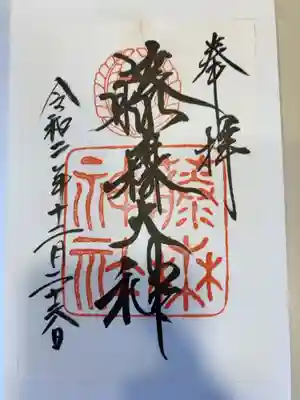 奉拝
藤森大神
藤森
神社
令和二年十二月二十六日